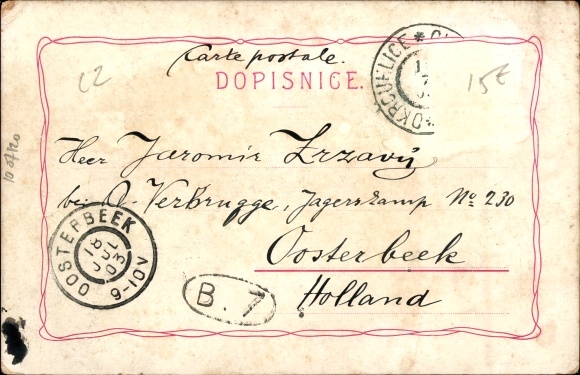 Carte postale.
DOPISNICE.
C2
15€
Heer Jaromír Zrzavý
bei A. Verbrugge, Jagerskamp No 230
Oosterbeek
Holland
OOSTERBEEK
18
JUL
03
9-10V
B. 7